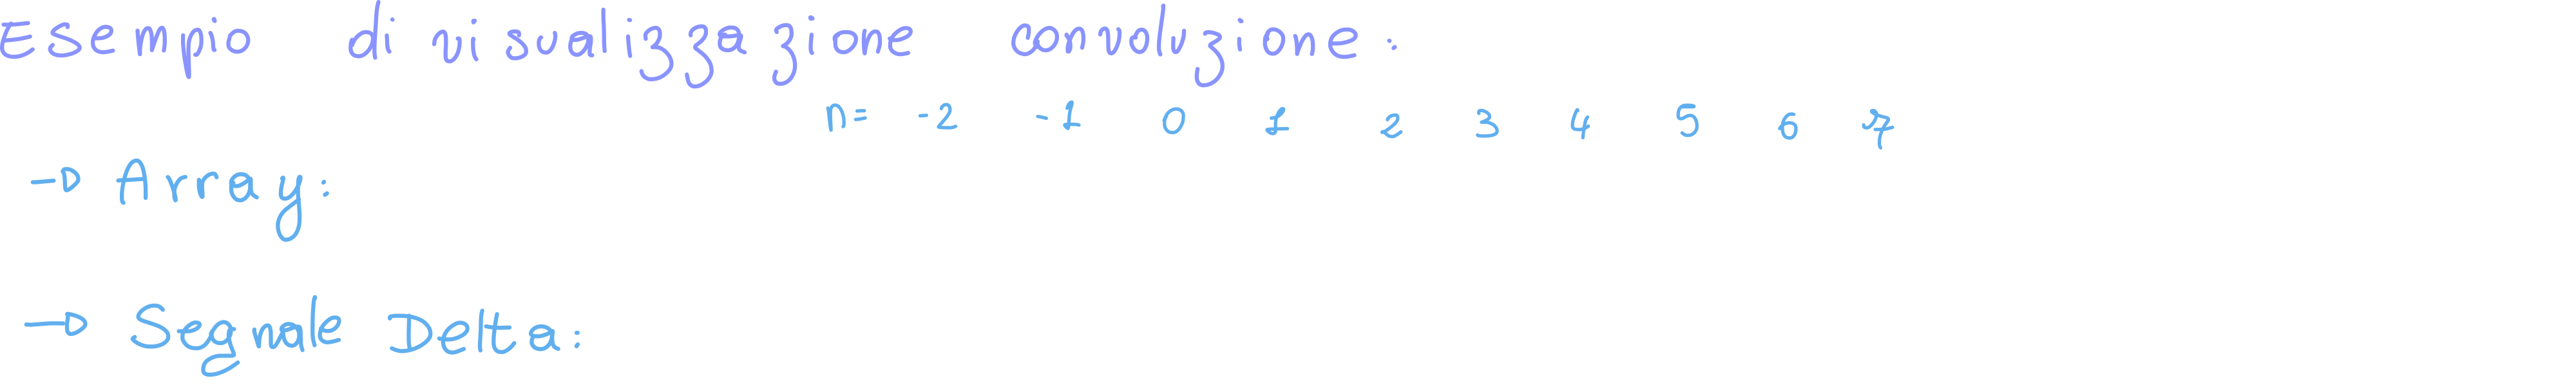 Esempio di visualizzazione convoluzione:
n= -2 -1 0 1 2 3 4 5 6 7
→ Array:
→ Segnale Delta: